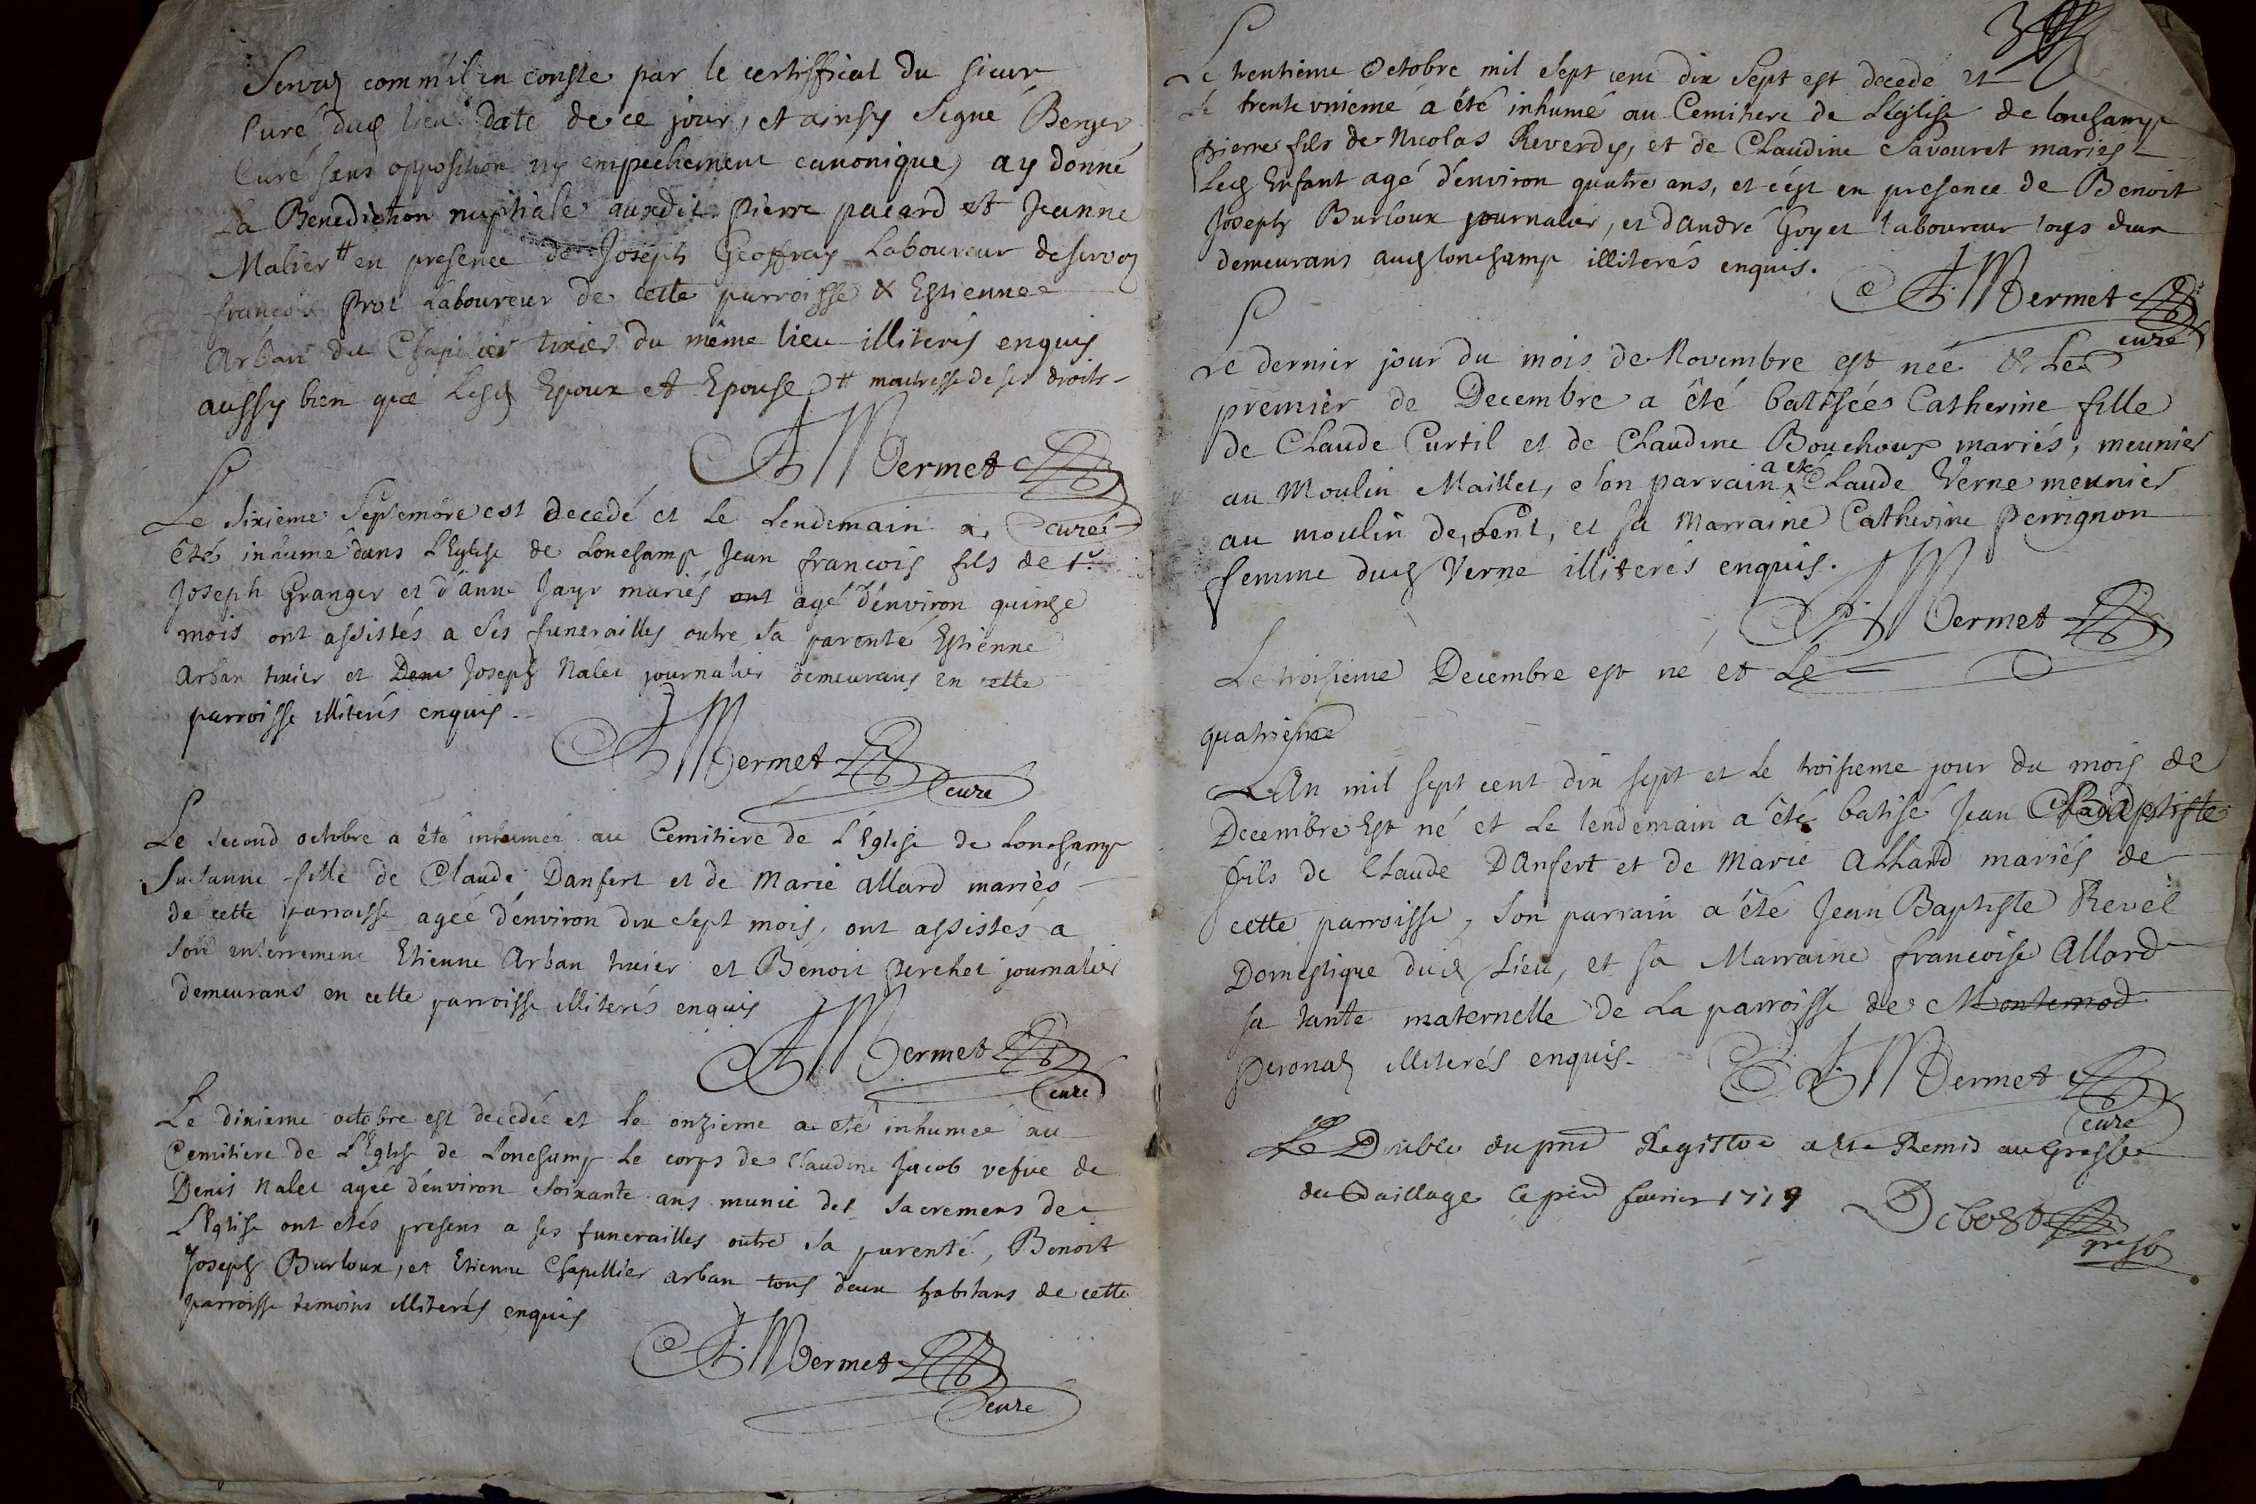 Servaz comm'il en conste par le certifficat du sieur
Curé dud lieu daté de ce jour, et ainsy signé Berger
Curé sans opposition ny empechement canonique, ay donné
La Benediction nuptiale auxdit Pierre pacard et Jeanne
Malier # en presence de Joseph Geoffray Laboureur de servaz
françois Prot Laboureur de cette parroisse & Estienne
Arban du Chapelier tixier du même lieu illiterés enquis
aussy bien que Lesd Epoux et Epouse # maitresse de ses droits
Mermet
curé
Le sixieme septembre est decedé et le Lendemain a
été inhumé dans L'Eglise de Lonchamp Jean francois fils de Sr
Joseph Granger et d'anne Jayr mariés ont agé d'environ quinze
mois ont assistés a ses funerailles outre sa parenté Estienne
Arban tixier et Deni Joseph Nalet journalier demeurans en cette
parroisse illiterés enquis
Mermet
curé
Le second octobre a été inhumeé au Cemitiere de L'Eglise de Lonchamp
Susanne fille de Claude Danfert et de Marie allard mariés
de cette parroisse agée d'environ dix sept mois, ont assistés a
son enterrement Etienne Arban tixier et Benoit perchet journalier
demeurans en cette parroisse illiterés enquis
Mermet
curé
Le dixieme octobre est decedée et le onzieme a été inhumeé au
Cemitiere de L'Eglise de Lonchamp Le corps de Claudine Jacob vefve de
Denis Nalet agée d'environ soixante ans munie des sacremens de
L'Eglise ont etés presens a ses funerailles outre sa parenté, Benoit
Joseph Burloux, et Etienne Chapellier arban tous deux habitans de cette
parroisse temoins illiterés enquis
Mermet
curé
3
Le trentieme Octobre mil sept cent dix sept est decedé et
Le trente unieme a été inhumé au Cemitiere de L'église de lonchamp
pierre fils de Nicolas Reverdy, et de Claudine Savouret mariés
Led Enfant agé d'environ quatre ans, et c'est en presence de Benoit
Joseph Burloux journalier, et d'André Goyet laboureur tous deux
demeurans aud lonchamp illiterés enquis.
Mermet
curé
Le dernier jour du mois de Novembre est née & Le
premier de Decembre a été batisée Catherine fille
de Claude Curtil et de Claudine Bouchoux mariés, meunier
au Moulin Maillet, son parrain a été Claude Verne meunier
au moulin de Lent, et sa Marraine Catherine perrignon
femme dud Verne illiterés enquis.
Mermet
Le troisieme Decembre est né et Le
quatrieme
L'An mil sept cent dix sept et le troisieme jour du mois de
Decembre Est né et Le lendemain a été batisé Jean
fils de Claude Danfert et de Marie Allard mariés de
cette parroisse, son parrain a été Jean Baptiste Revel
Domestique dud Lieu, et sa Marraine francoise Allard
sa tante maternelle de La parroisse de Monternod
peronaz illiterés enquis.
Mermet
curé
Le Double du pnt Registre a été Remis au Greffe
du Baillage Ce février
Debost